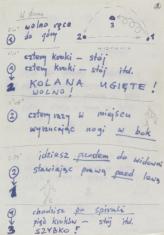 wolno ręce
do góry
2 1
1 cztery kroki – stój
4 cztery kroki – stój itd.
2 KOLANA UGIĘTE!
WOLNO!
2 cztery razy w miejscu
wyrzucając nogi w bok
idziesz przodem do widowni
2 stawiając prawą przed lewą
1
4 chodzisz po spirali
4 pięć kroków – stój itd.
2 SZYBKO!